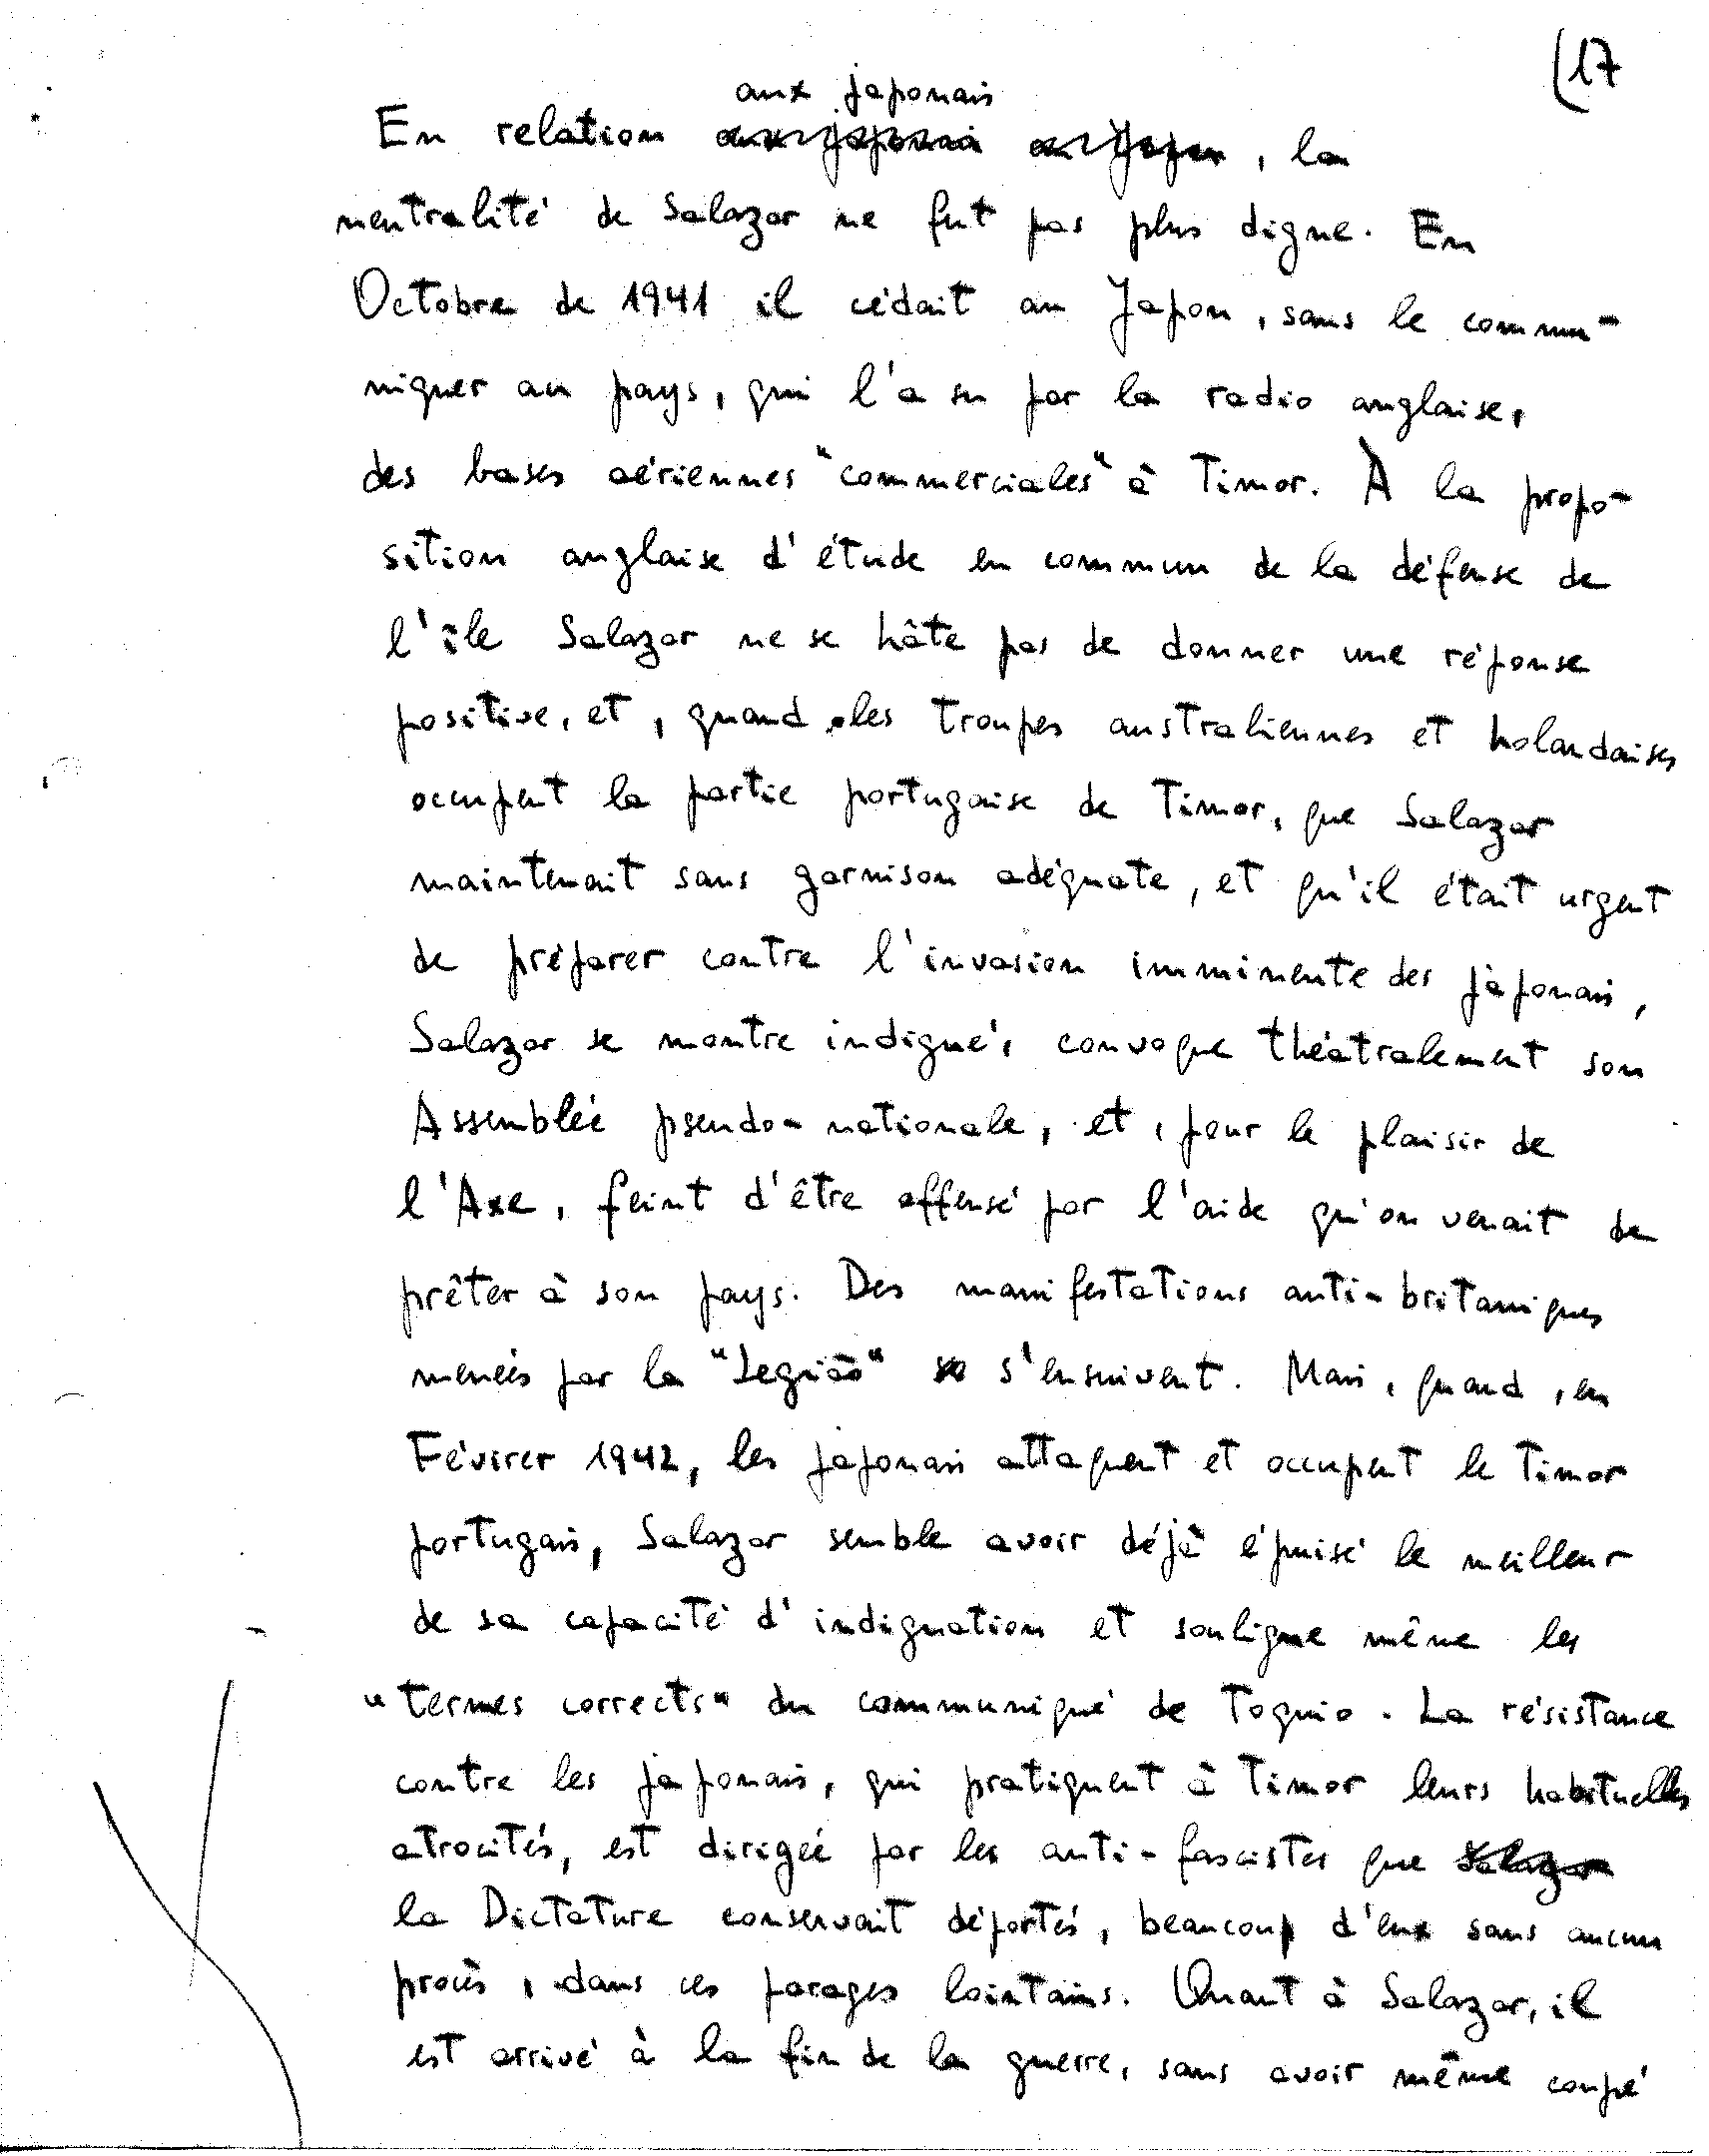 (17
aux japonais
En relation aux japonai au Japon, la
neutralité de Salazar ne fut pas plus digne. En
Octobre de 1941 il cédait au Japon, sans le commu-
niquer au pays, qui l'a su par la radio anglaise,
des bases aériennes "commerciales" à Timor. À la propo-
sition anglaise d'étude en commun de la défense de
l'île Salazar ne se hâte pas de donner une réponse
positive, et, quand les troupes australiennes et holandaises
occupent la partie portugaise de Timor, que Salazar
maintenait sans garnison adéquate, et qu'il était urgent
de préparer contre l'invasion imminente des japonais,
Salazar se montre indigné, convoque théatralement son
Assemblée pseudo-nationale, et, pour le plaisir de
l'Axe, feint d'être offensé par l'aide qu'on venait de
prêter à son pays. Des manifestations anti-britaniques
menées par la "Legião" s'ensuivent. Mais, quand, en
Févirer 1942, les japonais attaquent et occupent le Timor
portugais, Salazar semble avoir déjà épuisé le meilleur
de sa capacité d'indignation et souligne même les
"termes corrects" du communiqué de Toquio. La résistance
contre les japonais, qui pratiquent à Timor leurs habituelles
atrocités, est dirigée par les anti-fascistes que Salazar
la Dictature conservait déportés, beaucoup d'eux sans aucun
procès, dans ces parages lointains. Quant à Salazar, il
est arrivé à la fin de la guerre, sans avoir même coupé